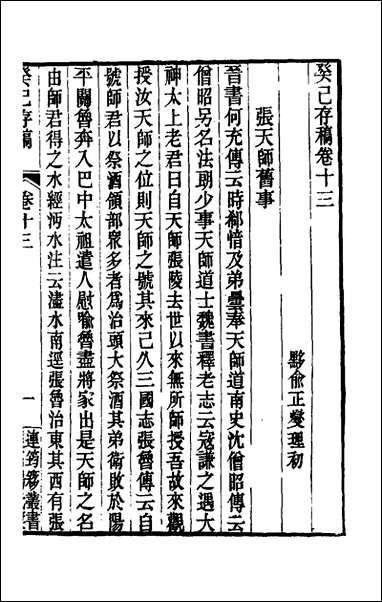 癸已存稿卷十三
黟俞正燮理初
張天師舊事
晉書何充傳云時郗愔及弟曇奉天師道南史沈僧昭傳云
僧昭另名法朗少事天師道士魏書釋老志云寇謙之遇大
神太上老君曰自天師張陵去世以來無所師授吾故來觀
授汝天師之位則天師之號其來已久三國志張魯傳云自
號師君以祭酒領部眾多者為治頭大祭酒其弟衛敗於陽
平關魯奔入巴中太祖遣人慰喻魯盡將家出是天師之名
由師君得之水經沔水注云濜水南逕張魯治東其西有張
癸已存稿
卷十三
一
連筠簃叢書